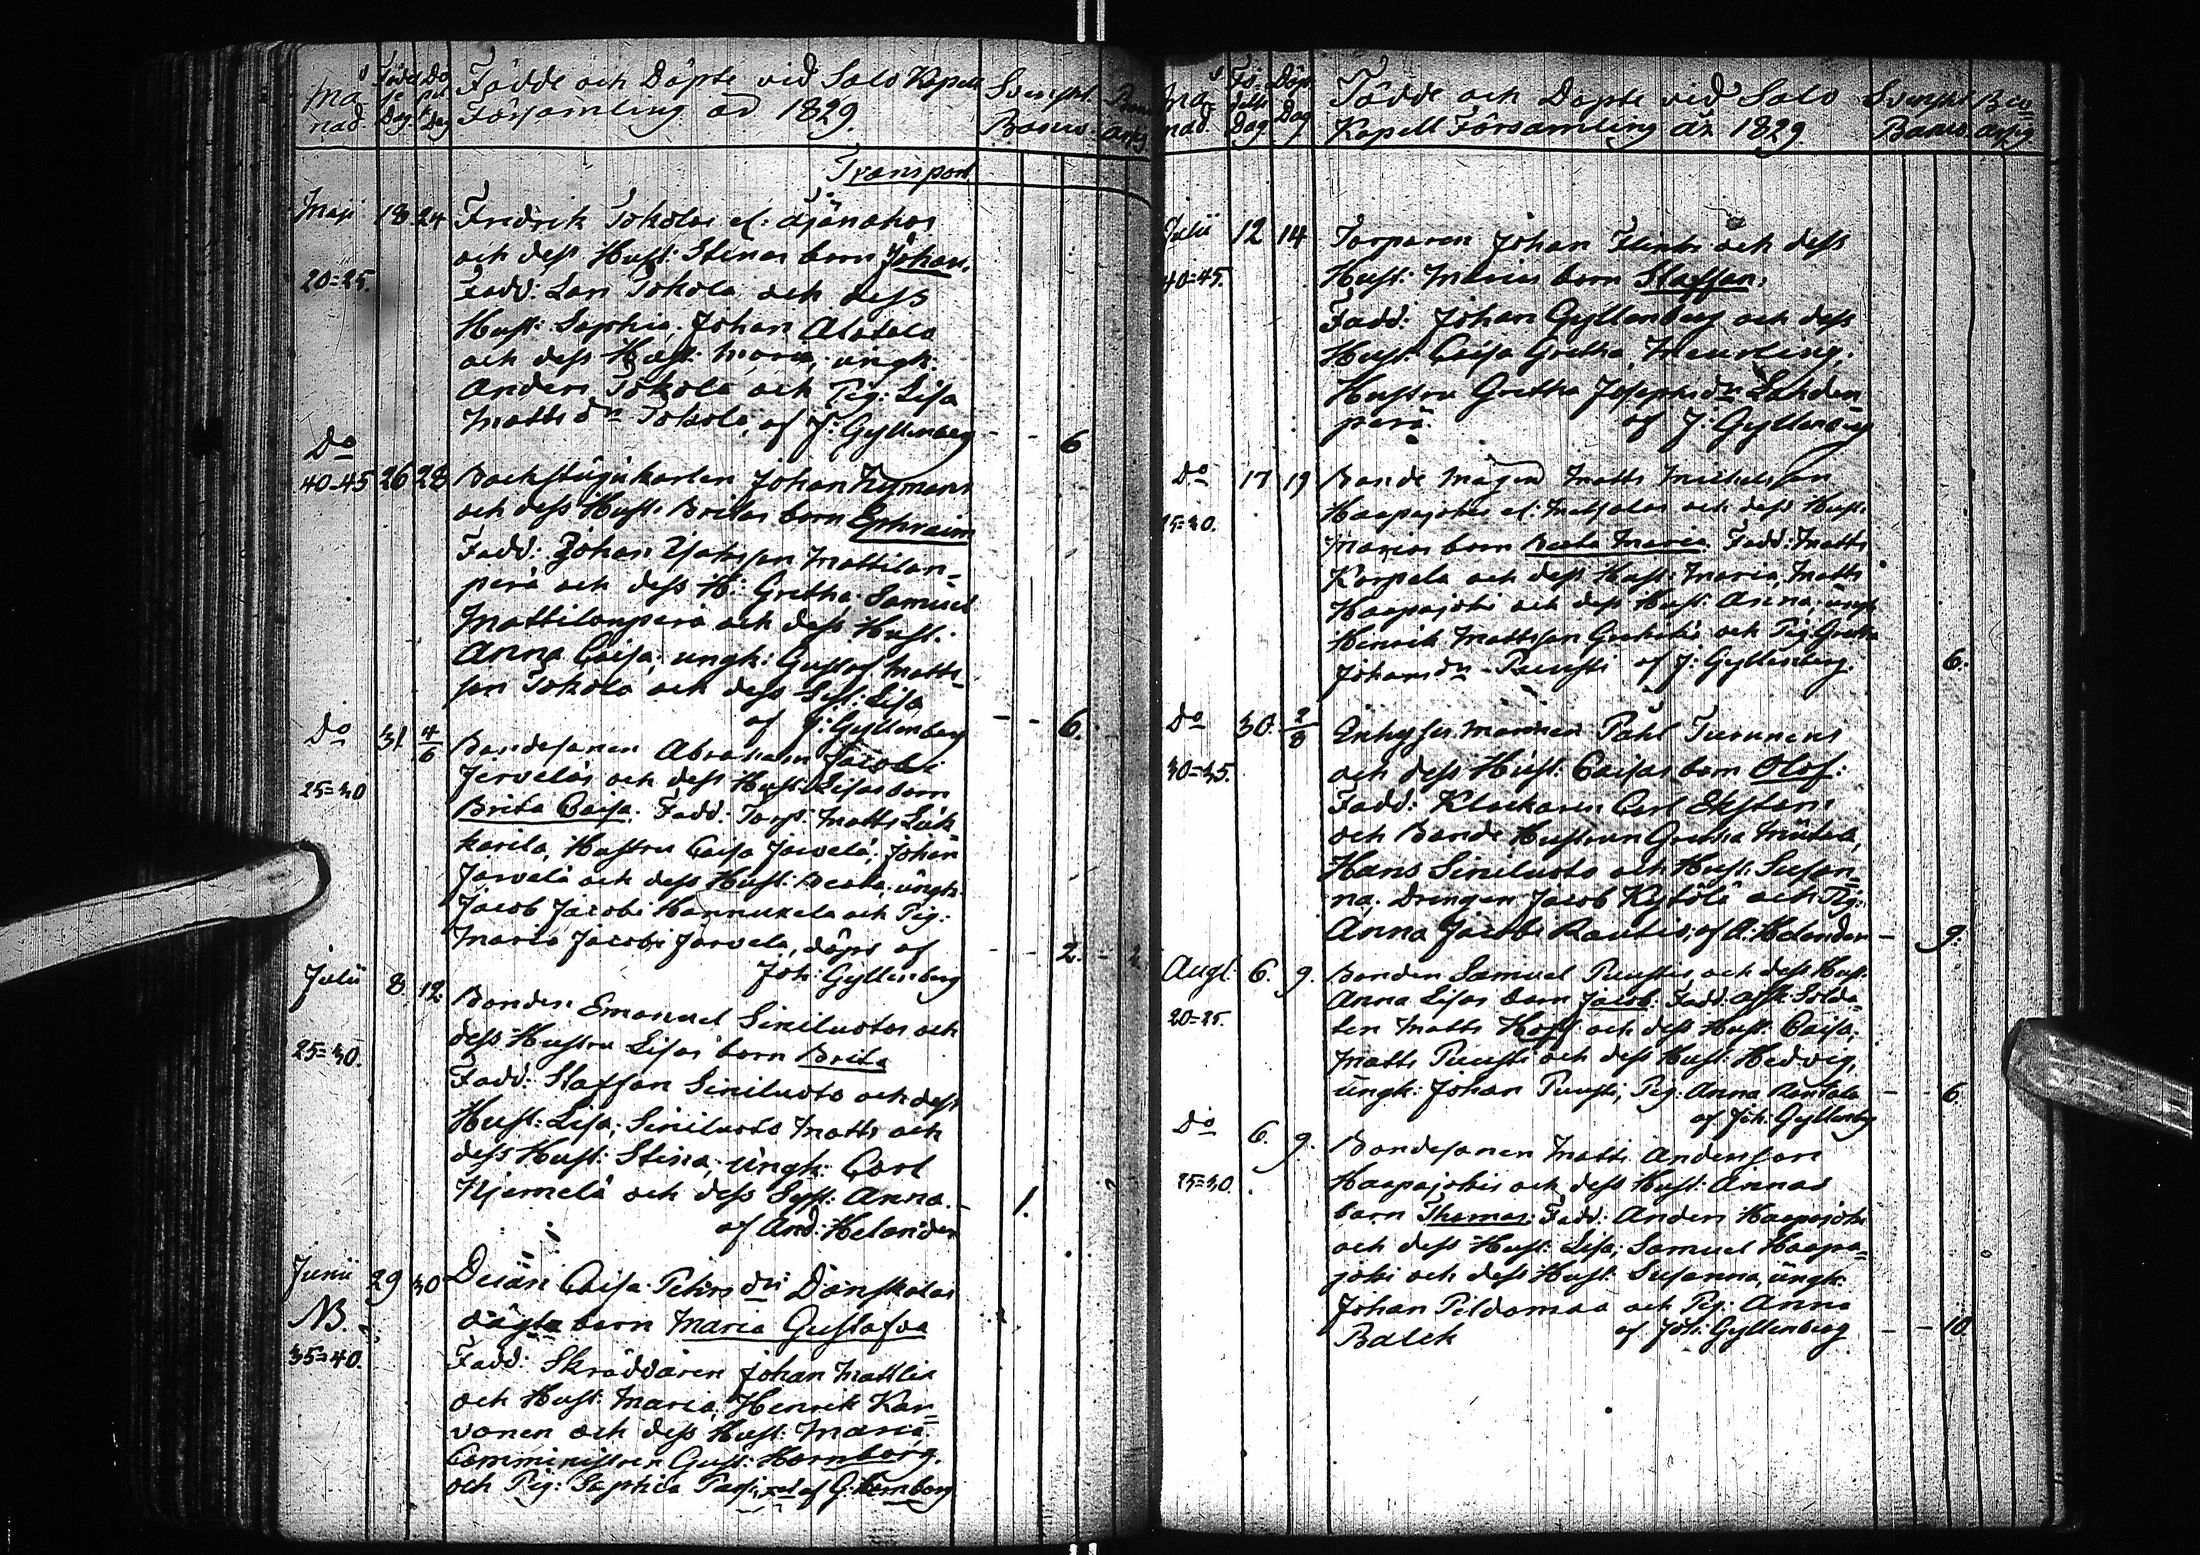 Må-
nad.
Födel
se
Dag
Dö
pel
Dag
Födde och Döpte vid Salo Kapell
Församling år 1829.
Svenskt
Banco.
Transport
Maji 18 24 Fredrik Tokolas el:
och dess Hust: Stinas barn Johan.
20=25. Fadd: Lars Tokola och dess
Hust: Sophia. Johan Alatalo
och dess Hust: Maria, ungk:
Anders Tokola och Pig: Lisa
Matts dr Tokola, af J: Gyllenberg - - 6
Do
40-45 26 28 Backstugukarlen Johan Nymans
och dess Hust: Britas barn Ephraim
Fadd: Johan Isaksson Mattilan=
perä och dess H: Gretha. Samuel
Mattilanperä och dess Hust:
Anna Caisa, ungk: Gustaf Matts-
son Tokola och dess Syst: Lisa
af J: Gyllenberg - - 6.
Do 31 4/6 Bondesonen Abraham Jacobi
Järveläs och dess Hust: Lisas barn
25=30 Brita Caisa. Fadd: Torp: Matts Luk=
karila, Hustru Caisa Järvelä, Johan
Järvelä och dess Hust: Beata, ungk:
Jacob Jacobi Hannukela och Pig:
Maria Jacobi Järvelä, döpt af - 2. -
Joh: Gyllenberg
Julii 8. 12. Bonden Emanuel Siniluotos och
dess Hustru Lisas barn Brita
25=30. Fadd: Staffan Siniluoto och dess
Hust: Lisa, Siniluoto Matts och
dess Hust: Stina, ungk: Carl
Hjernelä och dess Syst: Anna. - 1.
af And: Helander
Junii 29 30 Caisa Petersdr Danskolas
NB. oägta barn Maria Gustafva
35=40. Fadd: Skräddaren Johan Mattlin
och Hust: Maria, Henrik Kar=
vonen och dess Hust: Maria.
Comministern Gust: Hornborg.
och Pig: Sophia af G. Hornborg
Må-
nad.
Fö-
delse
Dag
Döp
Dag
Födde och Döpte vid Salo
Kapell Församling år 1829.
Svenskt
Banco.
Julii 12 14 Torparen Johan Flinks och dess
40=45. Hust: Marias barn Staffan.
Fadd: Johan Gyllenberg och dess
Hust: Caisa Gretha Meurling.
Hustru Gretha Josephsdr Lahden=
perä. af J: Gyllenberg
Do 17 19 Bonde Mågen Matts Michelsson
25=30. Haapajokis el: Matsolas och dess Hust:
Marias barn Beata Maria. Fadd: Matts
Korpela och dess Hust: Maria, Matts
Haapajoki och dess Hust: Anna, ungk
Henrik Mattsson och Pig: Gretha
Johansdr Puusti af J: Gyllenberg. 6.
Do 30. 2/8 Enhyses mannen Påhl Turunens
30=35. och dess Hust: Caisas barn Olof:
Fadd: Klockaren Carl Ekstam
och Bonde Hustrun Gretha Mattila,
Hans Siniluoto och Hust: Susan=
na. Drengen Jacob Kytölä och Pig:
Anna Jacobi Rautio, af A: Helander - 9.
Augt: 6. 9. Bonden Samuel Puustis och dess Hust:
20=25. Anna Lisas barn Jacob. Fadd: afsk: Solda-
ten Matts Hoff och dess Hust: Caisa,
Matts Puusti och dess Hust: Hedvig,
ungk: Johan Puusti, Pig: Anna Rantala - - 6.
af Joh: Gyllenberg
Do 6. 9. Bondesonen Matts Andersson
25=30. Haapajokis och dess Hust: Annas
barn Thomas; Fadd: Anders Haapajoki
och dess Hust: Lisa, Samuel Haapa=
joki och dess Hust: Susanna, ungk:
Johan Pildamaa och Pig: Anna
Balck af Joh: Gyllenberg - - 10.